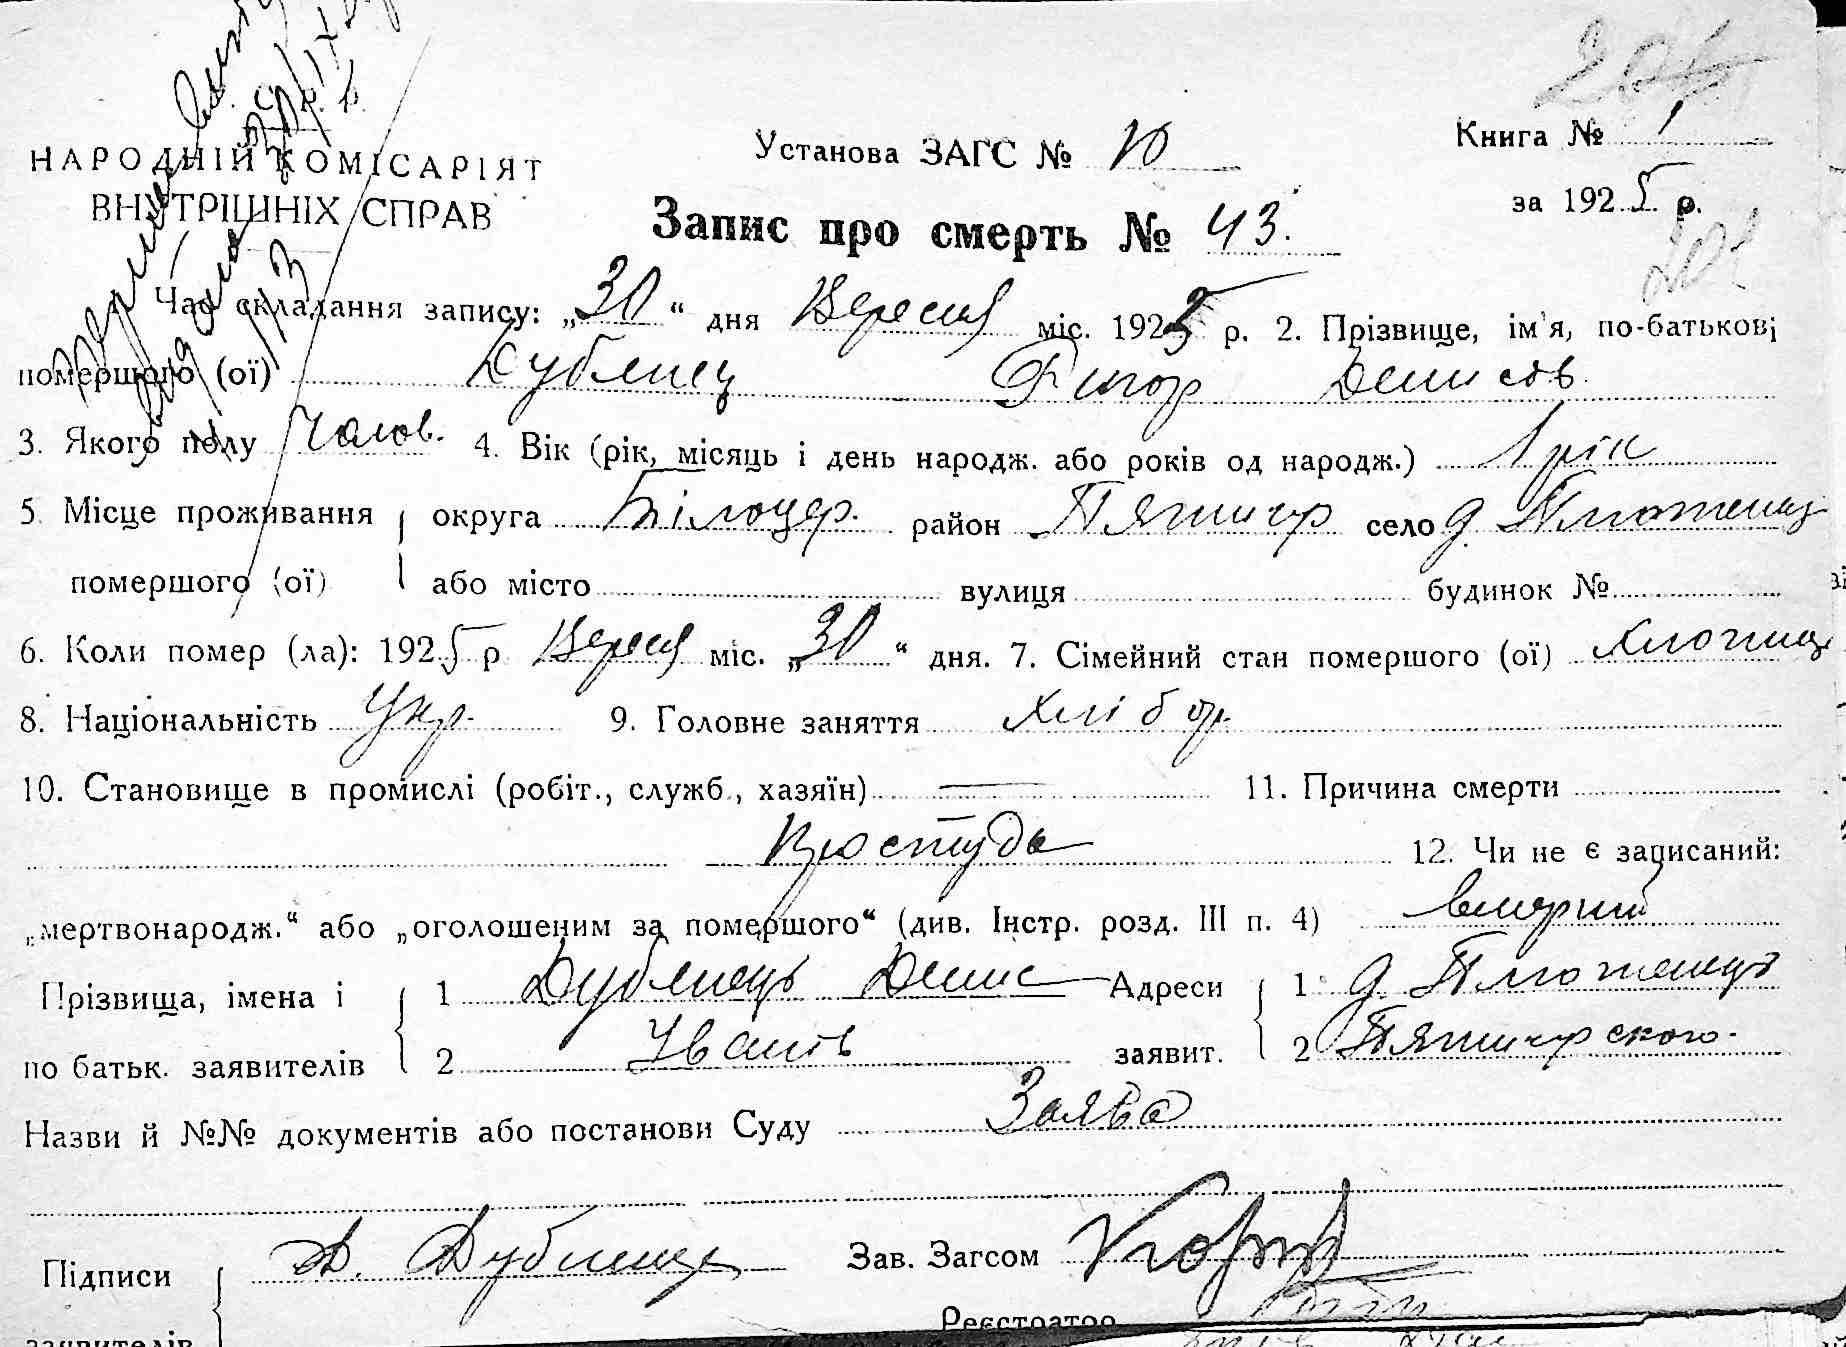 НАРОДНІЙ КОМІСАРІЯТ
ВНУТРІШНІХ СПРАВ
Установа ЗАГС № 10
Книга № 1
за 1925 р.
Запис про смерть № 43.
Час складання запису: „30“ дня Вересня міс. 1925 р. 2. Прізвище, ім'я, по-батькові
помершого (ої) Дублянец Григор Денисов
3. Якого полу Чолов. 4. Вік (рік, місяць і день народж. або років од народж.) 1 рік
5. Місце проживання округа Білоцер. район Пятигор село д.
помершого (ої) або місто вулиця будинок №
6. Коли помер (ла): 1925 р Вересня міс. „30“ дня. 7. Сімейний стан помершого (ої) Хлопець
8. Національність Укр. 9. Головне заняття Хлібор.
10. Становище в промислі (робіт., служб., хазяїн) — 11. Причина смерти
Простуда 12. Чи не є записаний:
„мертвонародж.“ або „оголошеним за помершого“ (див. Інстр. розд. III п. 4) вмерший
Прізвища, імена і 1 Дублянець Денис Адреси 1 д.
по батьк. заявителів 2 Іванів заявит. 2 Пятигорского.
Назви й №№ документів або постанови Суду Заява
Підписи Д. Дублянець Зав. Загсом
заявителів Реєстратор